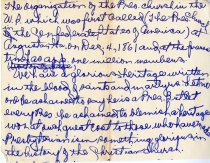 The organization of the Pres. church in the
U.S. which was first called (The Pres. Church
of the Confederate States of America) at
Augusta Ga. on Dec. 4, 1861 and at the present
time has one million members.
We have a glorious heritage written
in the blood of saints and martyrs. Let no
one be ashamed to say he is a Pres. but let
every Pres. be ashamed to blemish a heritage
won at such great cost to those who have
Presbyterianism something glorious in
the history of the Christian Church.